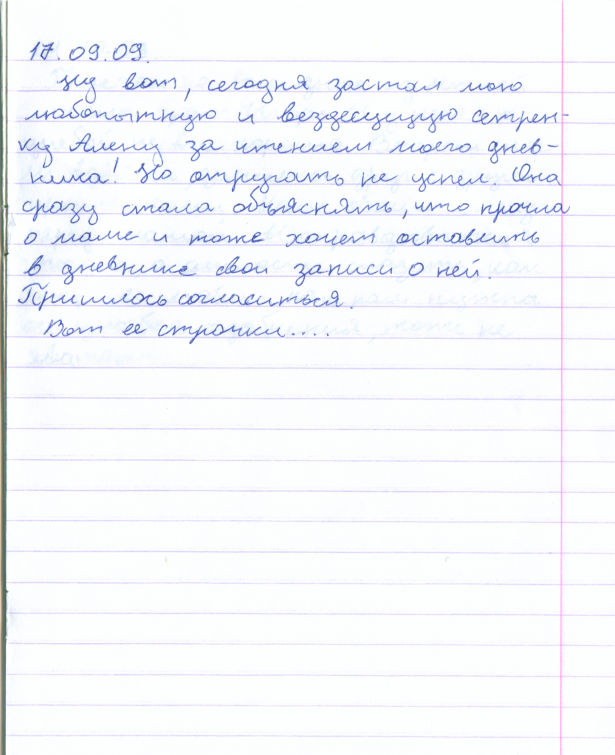 17.09.09.
Ну вот, сегодня застал мою
любопытную и вездесущую сетрен-
ку Алену за чтением моего днев-
ника! Но отругать не успел. Она
сразу стала объяснять, что прочла
о маме и тоже хочет оставить
в дневнике свои записи о ней.
Пришлось согласиться.
Вот ее строчки....